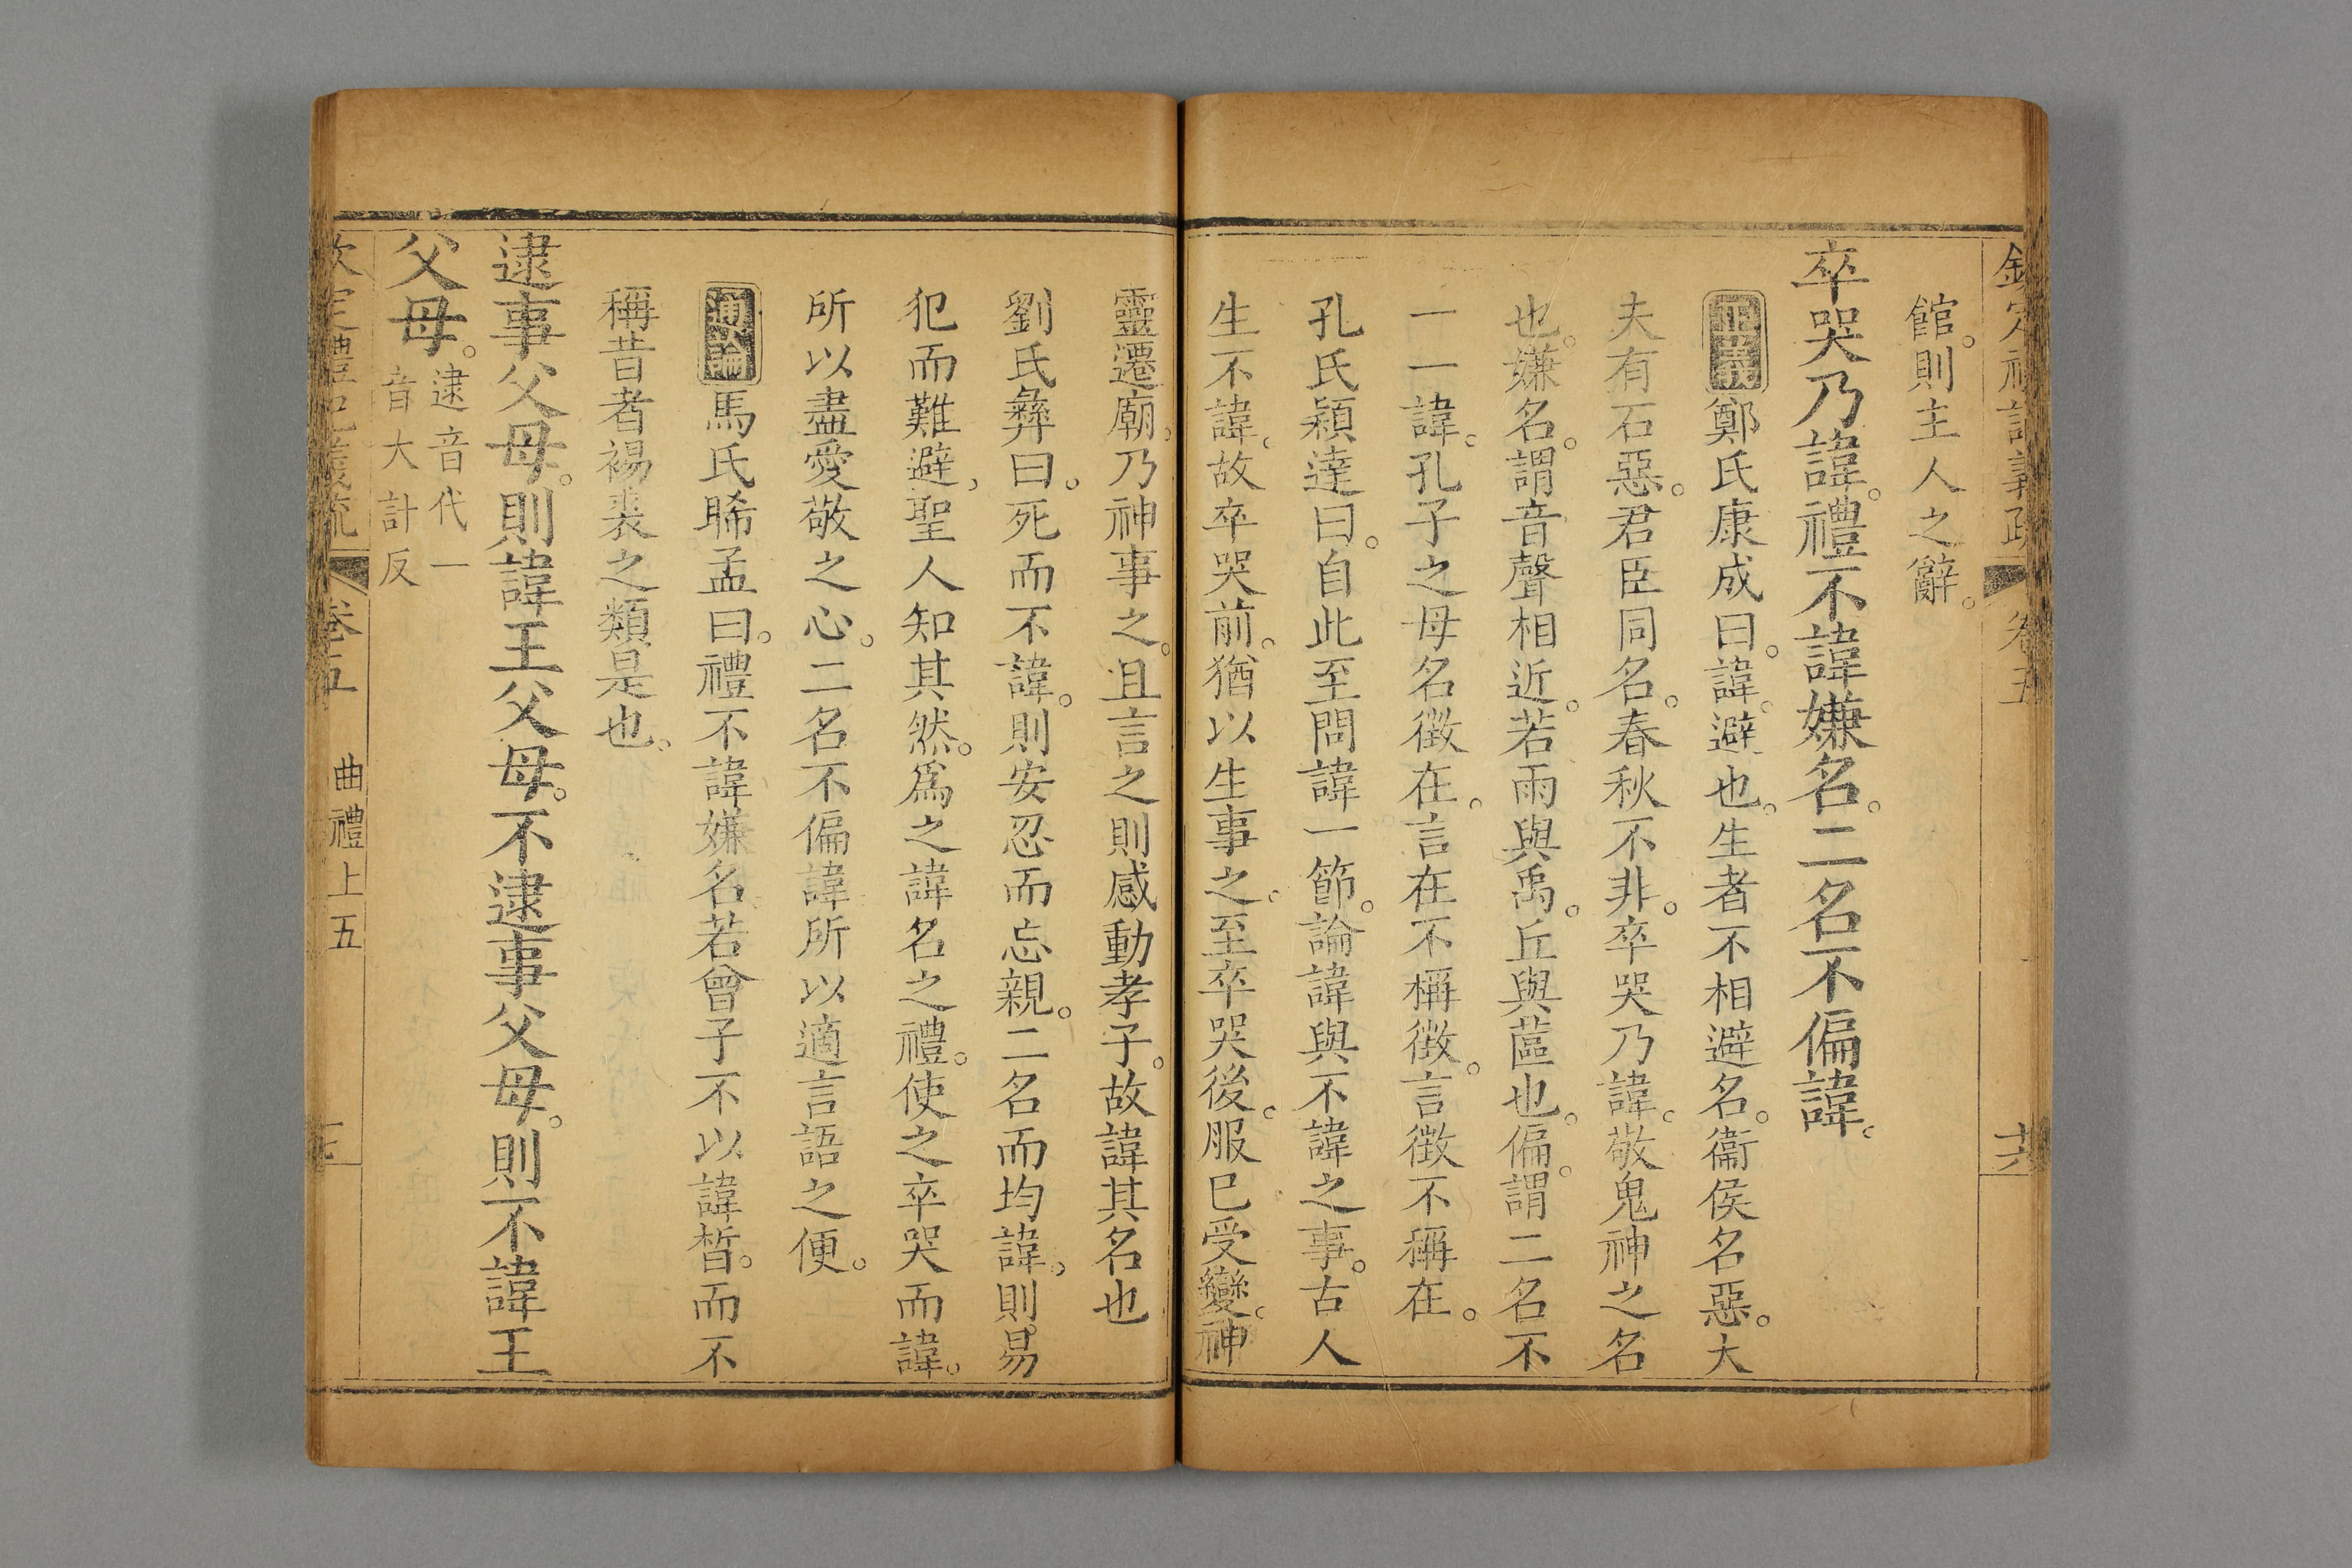 館。則主人之辭。
卒哭乃諱。禮不諱嫌名。二名不偏諱。
正義鄭氏康成曰。諱。避也。生者不相避名。衞侯名惡。大
夫有石惡。君臣同名。春秋不非。卒哭乃諱。敬鬼神之名
也。嫌名。謂音聲相近。若雨與禹。丘與蓲也。偏。謂二名不
一一諱。孔子之母名徵在。言在不稱徵。言徵不稱在。
孔氏穎達曰。自此至問諱一節。論諱與不諱之事。古人
生不諱。故卒哭前。猶以生事之。至卒哭後。服已受變。神
靈遷廟。乃神事之。且言之則感動孝子。故諱其名也
劉氏彝曰。死而不諱。則安忍而忘親。二名而均諱。則易
犯而難避。聖人知其然。爲之諱名之禮。使之卒哭而諱。
所以盡愛敬之心。二名不偏諱所以適言語之便。
通論馬氏晞孟曰。禮不諱嫌名。若曾子不以諱晳。而不
稱昔者裼裘之類是也。
逮事父母。則諱王父母。不逮事父母。則不諱王
父母。逮音代一
音大計反
卷五 曲禮上五